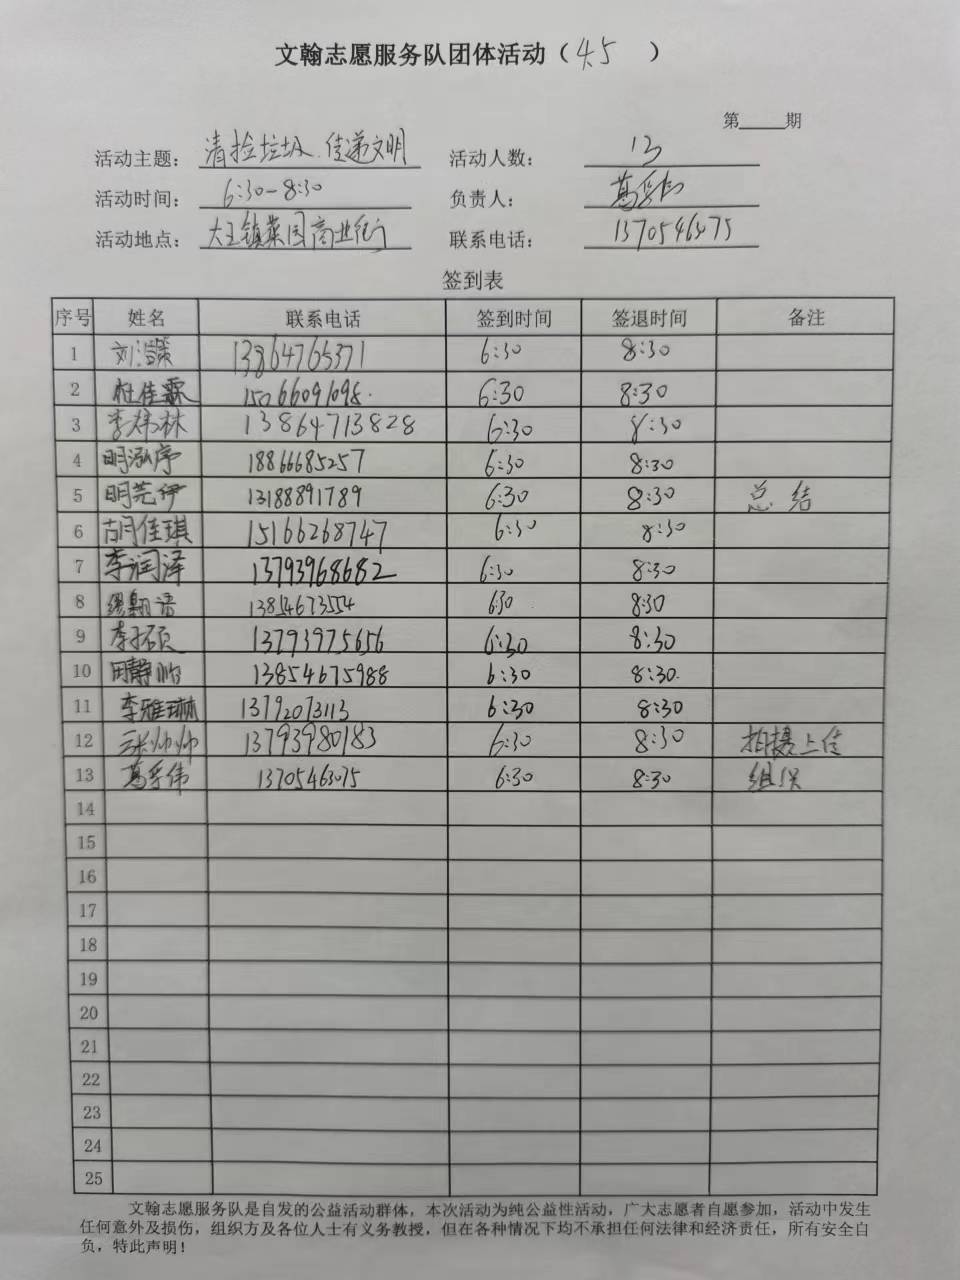 文翰志愿服务队团体活动（45）
第 期
活动主题：清捡垃圾.传递文明 活动人数：13
活动时间：6:30-8:30 负责人：葛
活动地点：大王镇菜园商业街 联系电话：13705463075
签到表
序号 姓名 联系电话 签到时间 签退时间 备注
1 刘 13864765371 6:30 8:30
2 杜佳霖 15066091098 6:30 8:30
3 李炜林 13864713828 6:30 8:30
4 明泓序 18866685257 6:30 8:30
5 明芫伊 13188891789 6:30 8:30 总结
6 胡佳琪 15166268747 6:30 8:30
7 李润泽 13793968682 6:30 8:30
8 语 13854673554 6:30 8:30
9 李硕 13793975656 6:30 8:30
10 田静 13854675988 6:30 8:30
11 李雅琳 13792073113 6:30 8:30
12 张帅帅 13793980183 6:30 8:30 拍摄上传
13 葛乐伟 13705463075 6:30 8:30 组织
14
15
16
17
18
19
20
21
22
23
24
25
文翰志愿服务队是自发的公益活动群体，本次活动为纯公益性活动，广大志愿者自愿参加，活动中发生
任何意外及损伤，组织方及各位人士有义务教授，但在各种情况下均不承担任何法律和经济责任，所有安全自
负，特此声明！